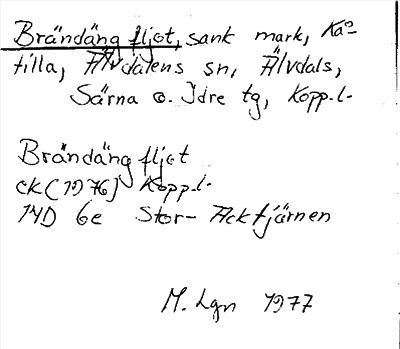 Brändäng fljot, sank mark, Kå-
tilla, Älvdalens sn, Älvdals,
Särna o. Idre tg, Kopp.l.
Brändäng fljot
EK (1976) Kopp.l.
14D 6e Stor-Acktjärnen
M. Lgn 1977